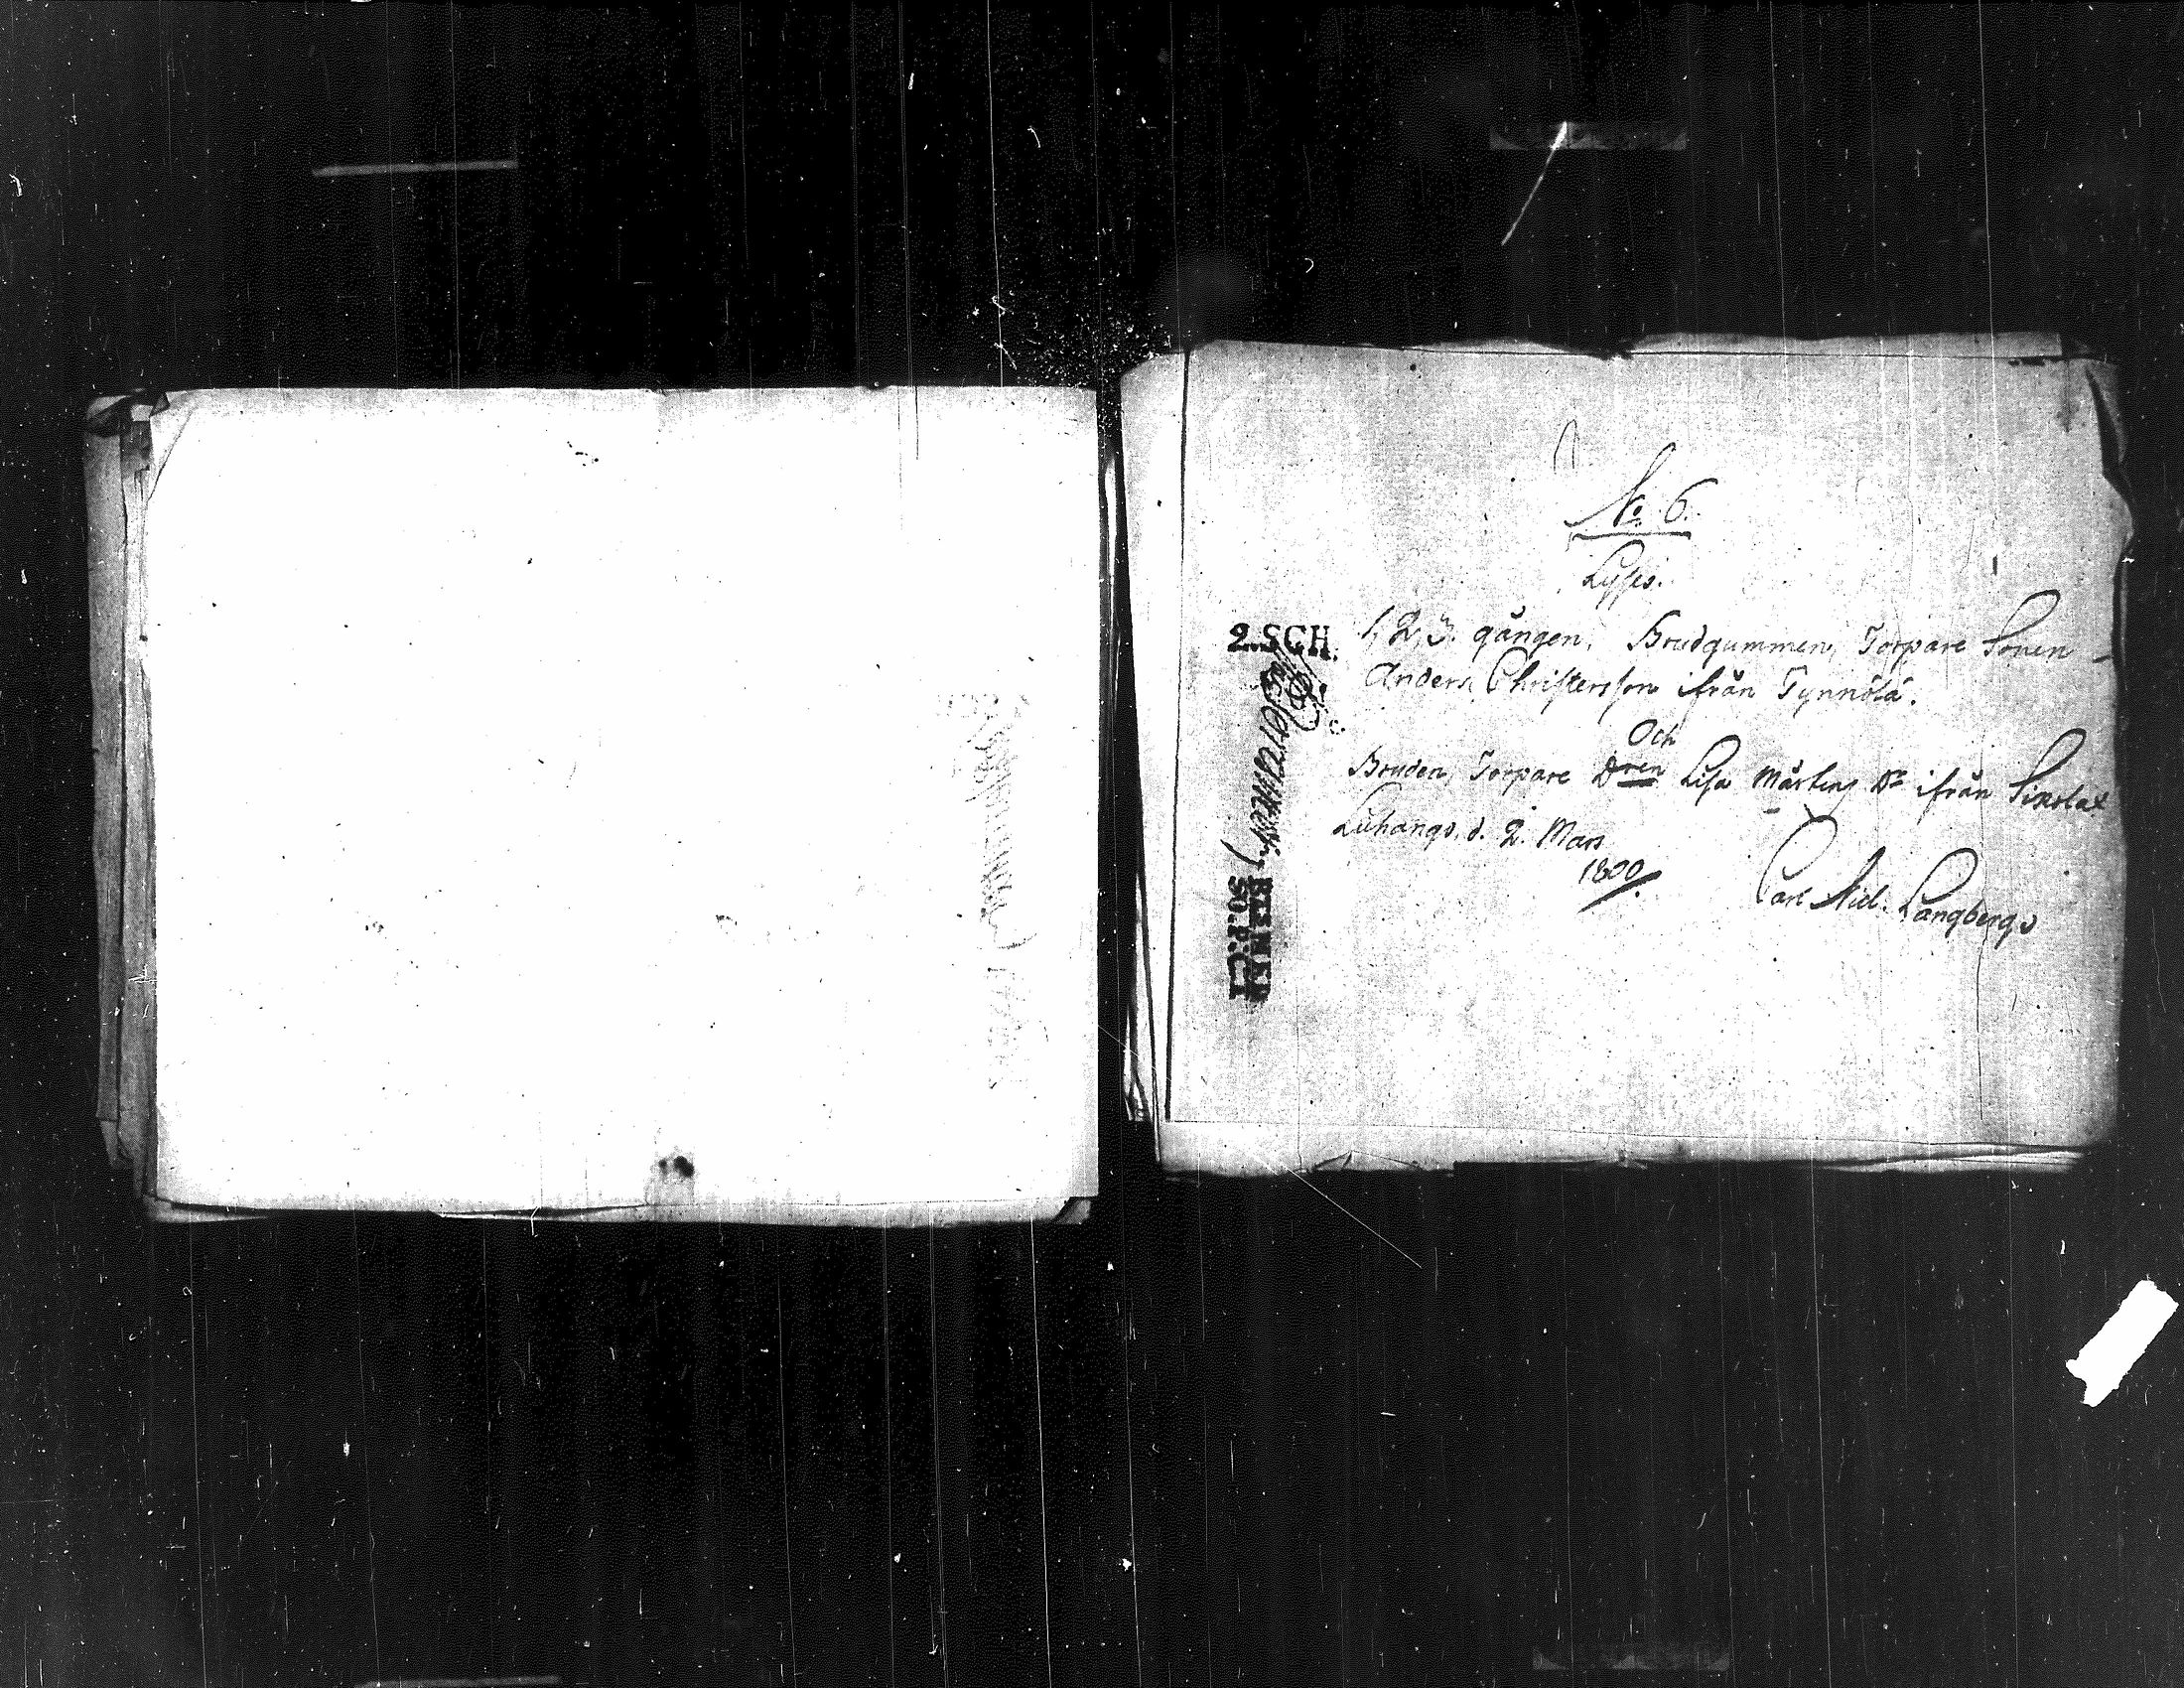 No. 6.
Lyses.
1, 2, 3. gången, Brudgummen, Torpare Sonen
Anders Christersson ifrån Tynnölä.
Och
Bruden, Torpare Dren Lisa Mårtens Dr ifrån Sikola
Luhango, d. 2. Mars
1800.
Carl Langberg
2.SCH.